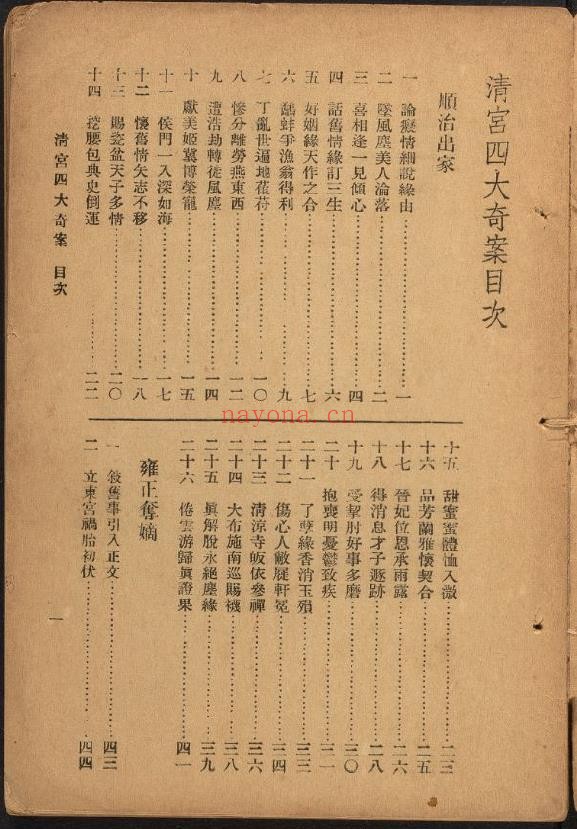 清宮四大奇案目次
順治出家
一 論癡情細說緣由…………一
二 墜風塵美人淪落…………二
三 喜相逢一見傾心…………四
四 話舊情緣訂三生…………六
五 好姻緣天作之合…………七
六 鷸蚌爭漁翁得利…………九
七 丁亂世逼地萑苻…………一〇
八 慘分離勞燕東西…………一二
九 遭浩劫轉徙風塵…………一四
十 獻美姬冀博榮寵…………一五
十一 侯門一入深如海…………一七
十二 懷舊情矢志不移…………一八
十三 賜瓷盆天子多情…………二〇
十四 挖腰包典史倒運…………二二
十五 甜蜜蜜體恤入微…………二三
十六 品芳蘭雅懷契合…………二五
十七 晉妃位恩承雨露…………二六
十八 得消息才子遯跡…………二八
十九 受掣肘好事多磨…………三〇
二十 抱喪明憂鬱致疾…………三一
二十一 了孽緣香消玉殞…………三三
二十二 傷心人敝屣軒冕…………三四
二十三 清涼寺皈依參禪…………三六
二十四 大布施南巡賜襪…………三八
二十五 眞解脫永絕塵緣…………三九
二十六 倦雲游歸眞證果…………四一
雍正奪嫡
一 敍舊事引入正文…………四三
二 立東宮禍胎初伏…………四四
清宮四大奇案 目次
一
nayona.cn